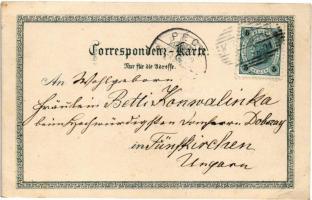 PÉCS
Correspondenz-Karte.
Nur für die Adresse.
An Wohlgeboren
Fräulein Betti Konwalinka
beim Hochwürdigsten Domherrn Dobszay
in Fünfkirchen
Ungarn